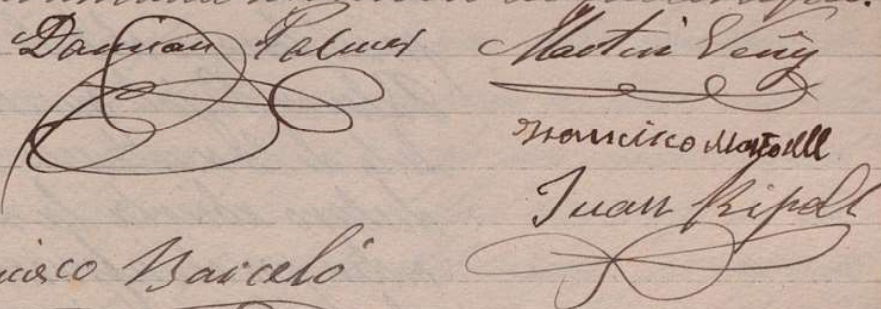 Damian Palmer Martin Veñy
Francisco Martorell
Juan Ripoll
Barceló